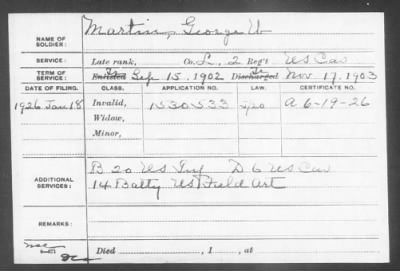 NAME OF SOLDIER: Martin, George W
SERVICE: Late rank, Co. L, 2 Reg't US Cav
TERM OF SERVICE: Enlisted Sep 15, 1902 Discharged Nov 17, 1903
DATE OF FILING. CLASS. APPLICATION NO. LAW. CERTIFICATE NO.
1926 Jan 18 Invalid, 1530533 A 6-19-26
Widow,
Minor,
ADDITIONAL SERVICES: B 20 US Inf D 6 US Cav
14 Batty US Field Art
REMARKS:
Died , 1 , at